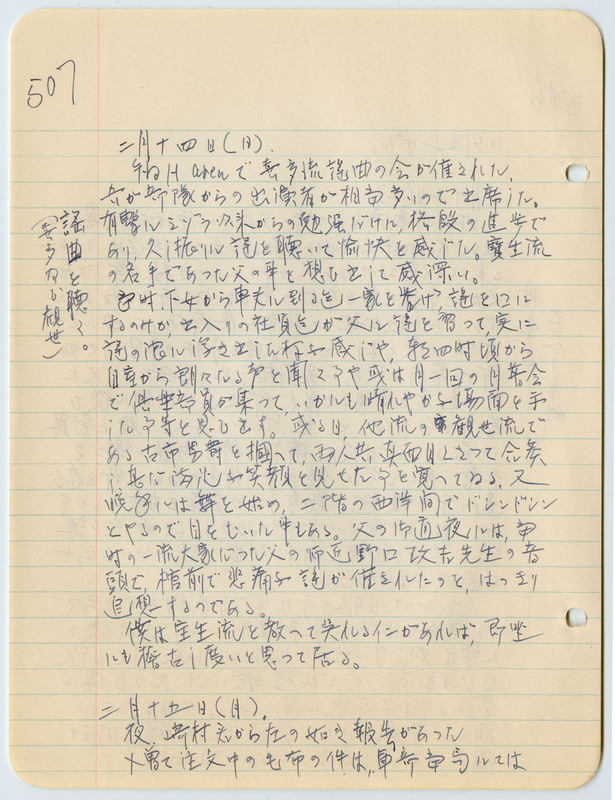 507
二月十四日（日）.
H areaで喜多流謡曲の会が催された.
我が部隊からの出演者が相当多いので出席した。
ミゾラ以来からの勉強だけに, 格段の進歩で
あり, 久振りに謡を聴いて愉快を感じた。寶生流
の名手であった父の事を想ひ出して感深い。
当時, 下女から車夫に到る迄一家を挙げて謡を口に
するのみか, 出入りの社員迄が父に謡を習って, 実に
謡の泡に浮き出した様な感じや, 朝四時頃から
自室から朗々たる声を聞く事や或は月一回の月並会
で倶楽部員が集って, いかにも晴れやかな場面を
した事等を思ひ出す。或る日, 他流の観世流で
ある古市男爵を掴へて, 両人共真面目くさって合奏
し甚だ満足な笑顔を見せた事を覚へてゐる。又
晩年には鼓を始め, 二階の西洋間でドレンドレン
とやるので目をむいた事もある。父の御通夜には, 当
時の一流大家だった父の師匠野口政吉先生の音
頭で, 棺前で悲痛な謡が催されたのを, はっきり
追想するのである。
僕は宝生流を教へて呉れる仁があれば, 即坐
にも稽古し度いと思って居る。
謡曲を聴く。
（喜多乃至観世）
二月十五日（月）.
夜, 村君から左の如き報告があった
×曽て注文中の毛布の件は, 軍部当局にては